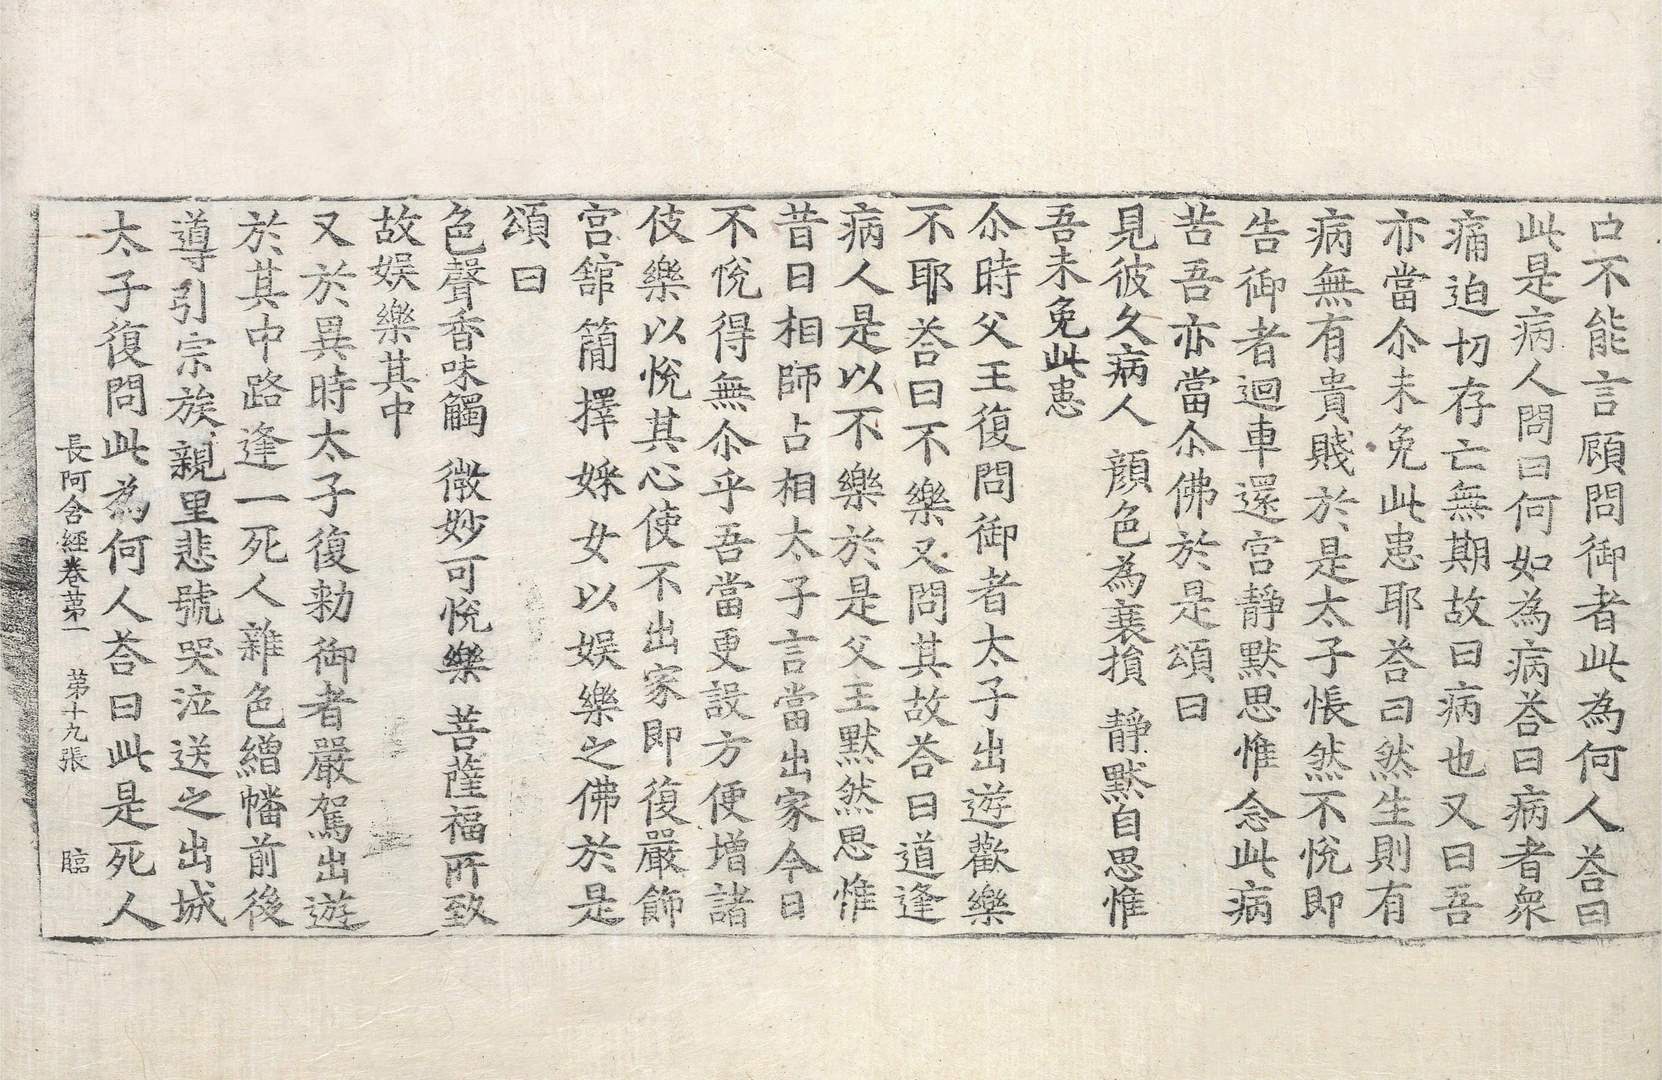 口不能言顧問御者此為何人荅曰
此是病人問曰何如為病荅曰病者衆
痛迫切存亡無期故曰病也又曰吾
亦當尒未免此患耶荅曰然生則有
病無有貴賤於是太子悵然不悅即
告御者迴車還宮静默思惟念此病
苦吾亦當尒佛於是頌曰
見彼久病人 顔色為衰損 静默自思惟
吾未免此患
尒時父王復問御者太子出遊歡樂
不耶荅曰不樂又問其故荅曰道逢
病人是以不樂於是父王默然思惟
昔日相師占相太子言當出家今日
不悅得無尒乎吾當更設方便增諸
伎樂以悅其心使不出家即復嚴飾
宮舘簡擇婇女以娱樂之佛於是
頌曰
色聲香味觸 微妙可悅樂 菩薩福所致
故娱樂其中
又於異時太子復勑御者嚴駕出遊
於其中路逢一死人雜色繒幡前後
導引宗族親里悲號哭泣送之出城
太子復問此為何人荅曰此是死人
長阿含經卷第一 第十九張 臨